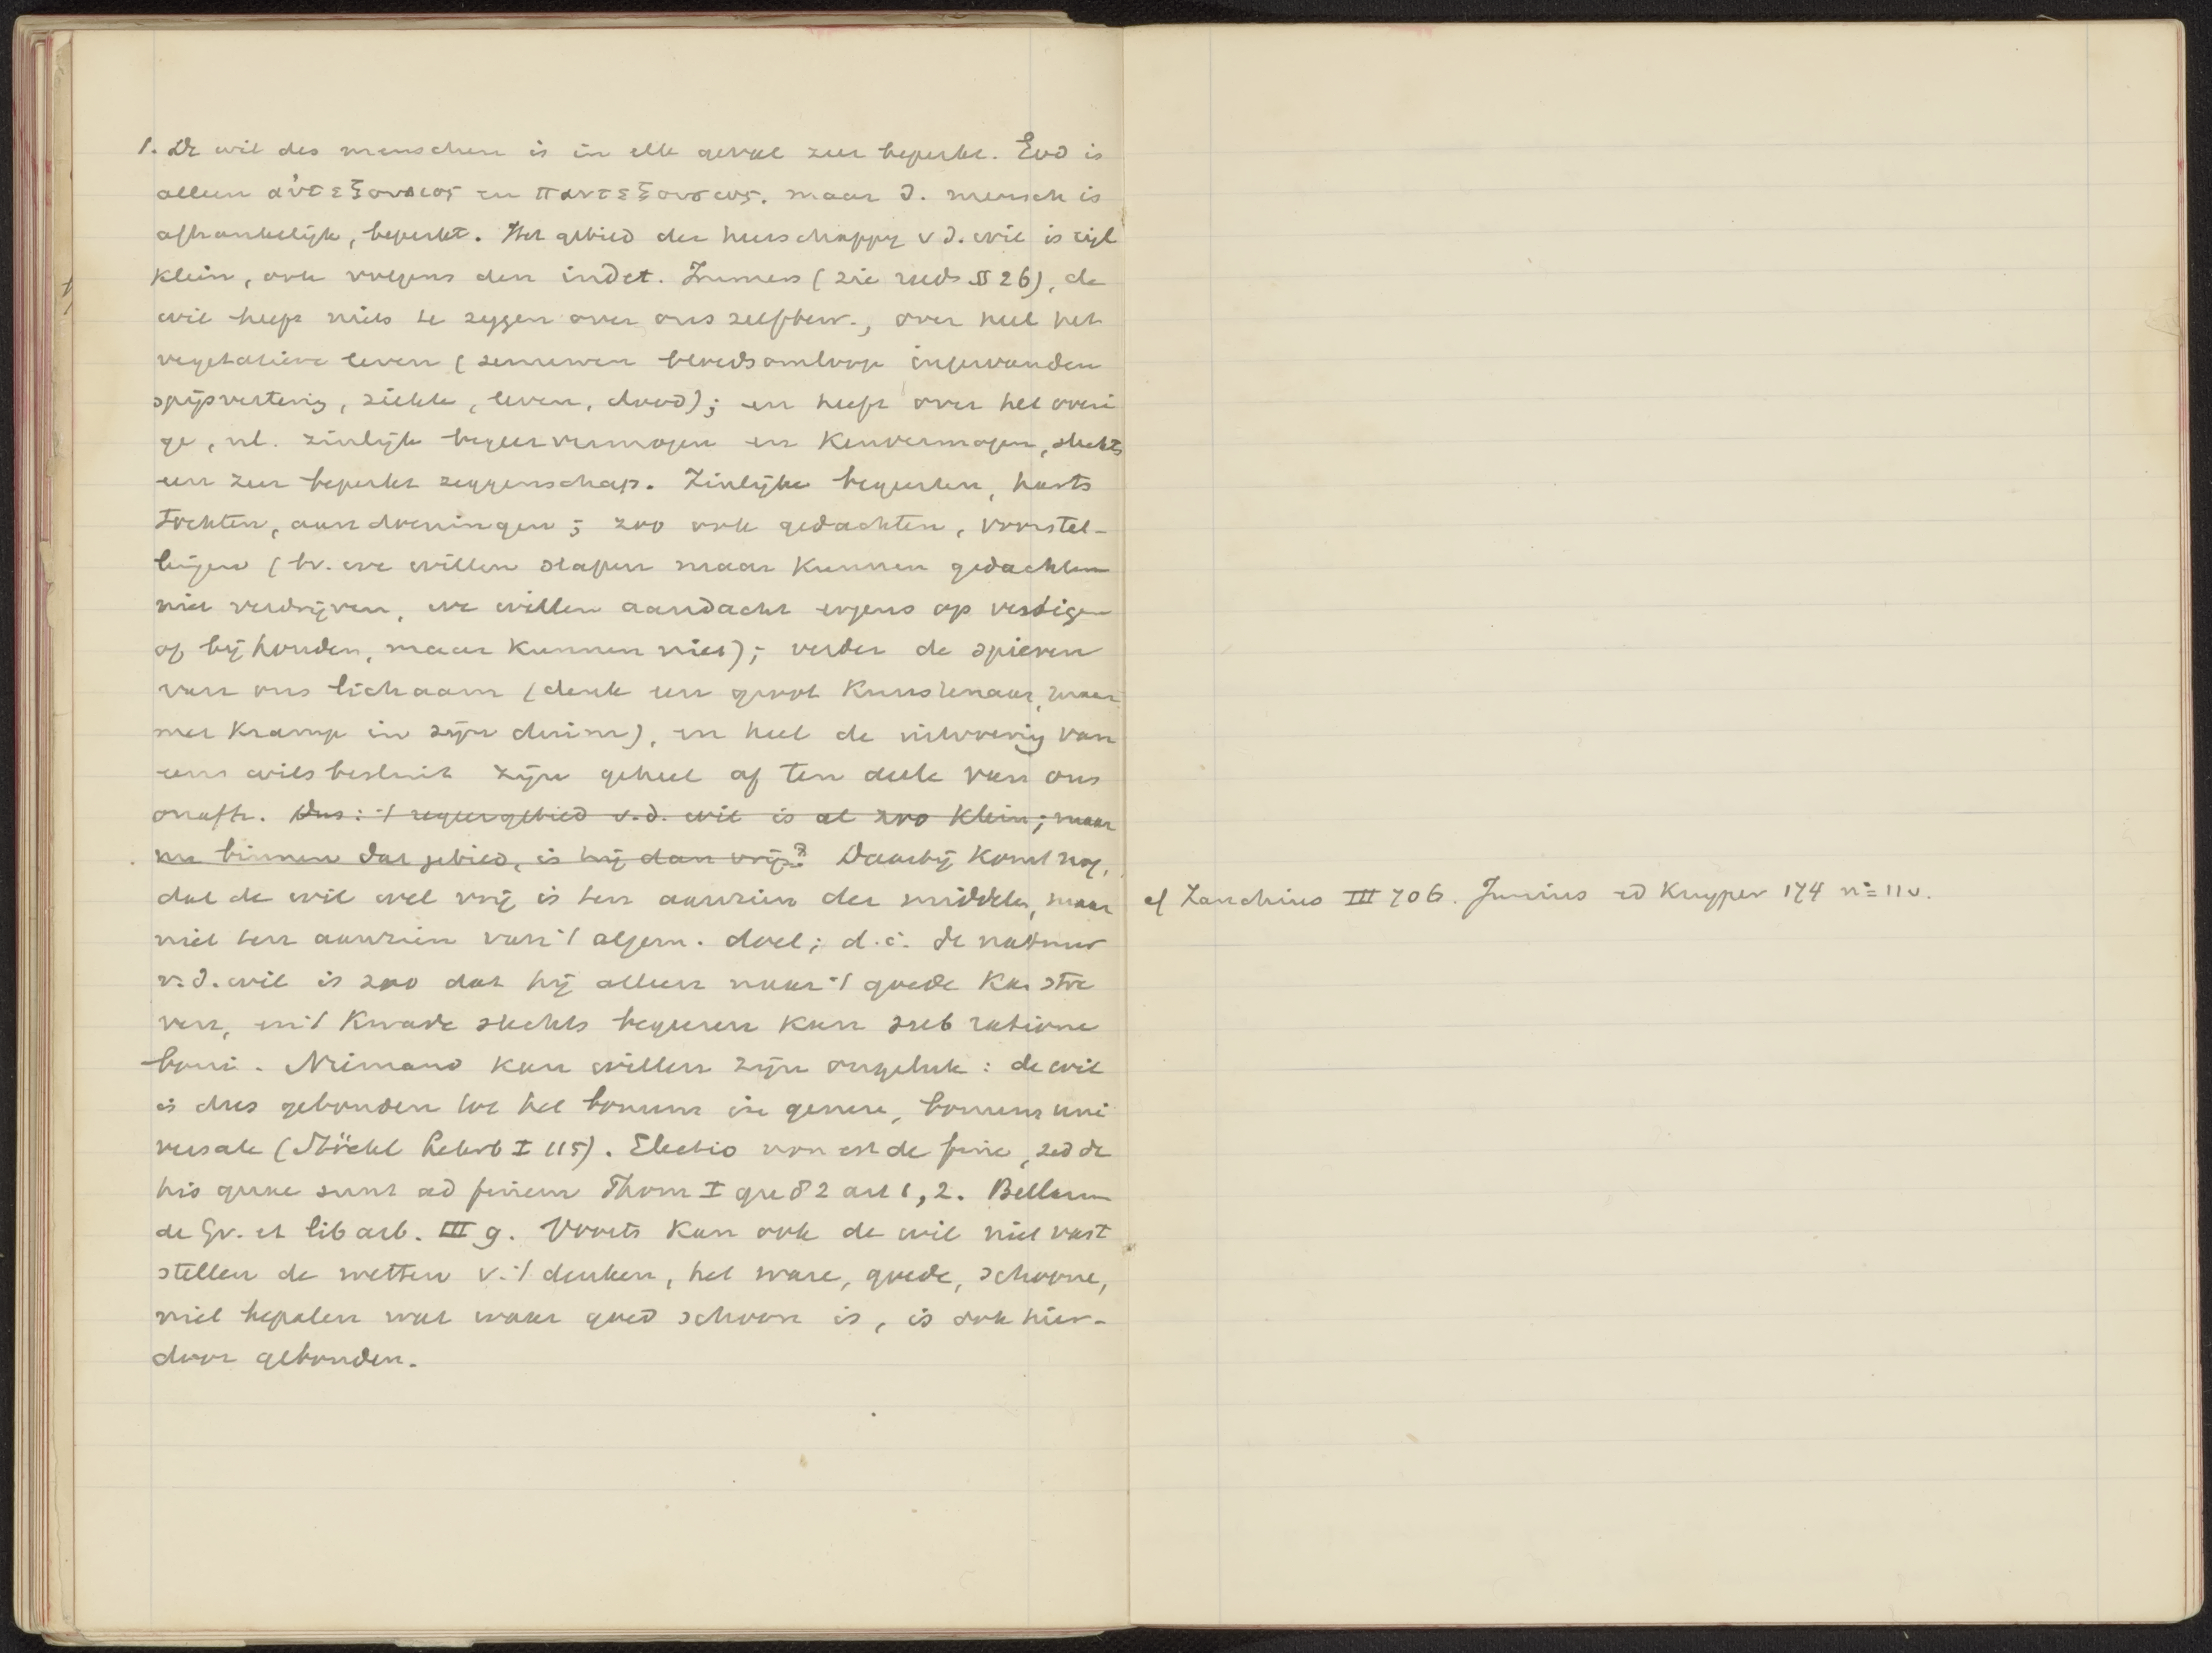 1. De wil des menschen is in elk geval zeer beperkt. God is
alleen αὐτεξουσιος en παντεξουσιος. maar d. mensch is
afhankelijk, beperkt. Het gebied der heerschappy v d. wil is
klein, ook volgens den indet. Immers (zie reeds §§ 26), de
wil heeft niets te zeggen over ons zelfbew., over heel het
vegetatieve leven (zenuwen bloedsomloop ingewanden
spijsvertering, ziekte, leven, dood); en heeft over het overi
ge, nl. zinlijk begeervermogen en Kenvermogen, slechts
een zeer beperkt zeggenschap. Zinlijke begeerten, harts
tochten, aandoeningen; zoo ook gedachten, voorstel-
lingen (bv. we willen slapen maar kunnen gedachten
niet verdrijven, we willen aandacht ergens op vestigen
of bij houden, maar kunnen niet); verder de spieren
van ons lichaam (denk een groot Kunstenaar, maar
met Kramp in zijn duim), en heel de uitvoering van
een wilsbesluit zijn geheel of ten deele van ons
onafh. Dus: 't regeergebied v.d. wil is al zoo klein; maar
nu binnen dat gebied, is hij dan vrij? Daarbij komt nog,
dat de wil wel vrij is ten aanzien der middelen, maar
niet ten aanzien van 't algem. doel; d.i. de natuur
v.d. wil is zoo dat hij alleen naar 't goede kan stre
ven, en 't Kwade slechts begeeren kan sub ratione
boni. Niemand kan willen zijn ongeluk: de wil
is dus gebonden tot het bonum in genere, bonum uni
versale (Stöckl Lehrb I 115). Electio non est de fine, sed de
his quae sunt ad finem Thom I qu 82 art 1, 2. Bellarm
de Gr. et lib arb. III 9. Voorts kan ook de wil niet vast
stellen de wetten v. 't denken, het ware, goede, schoone,
niet bepalen wat waar goed schoon is, is ook hier-
door gebonden.
cf Zanchius III 706. Junius ed Kuyper 174 n=